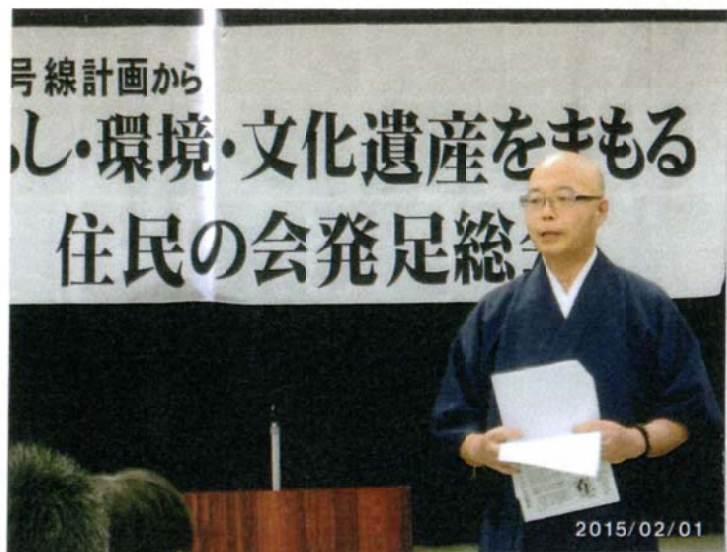 号線計画から
し・環境・文化遺産をまもる
住民の会発足総会
2015/02/01